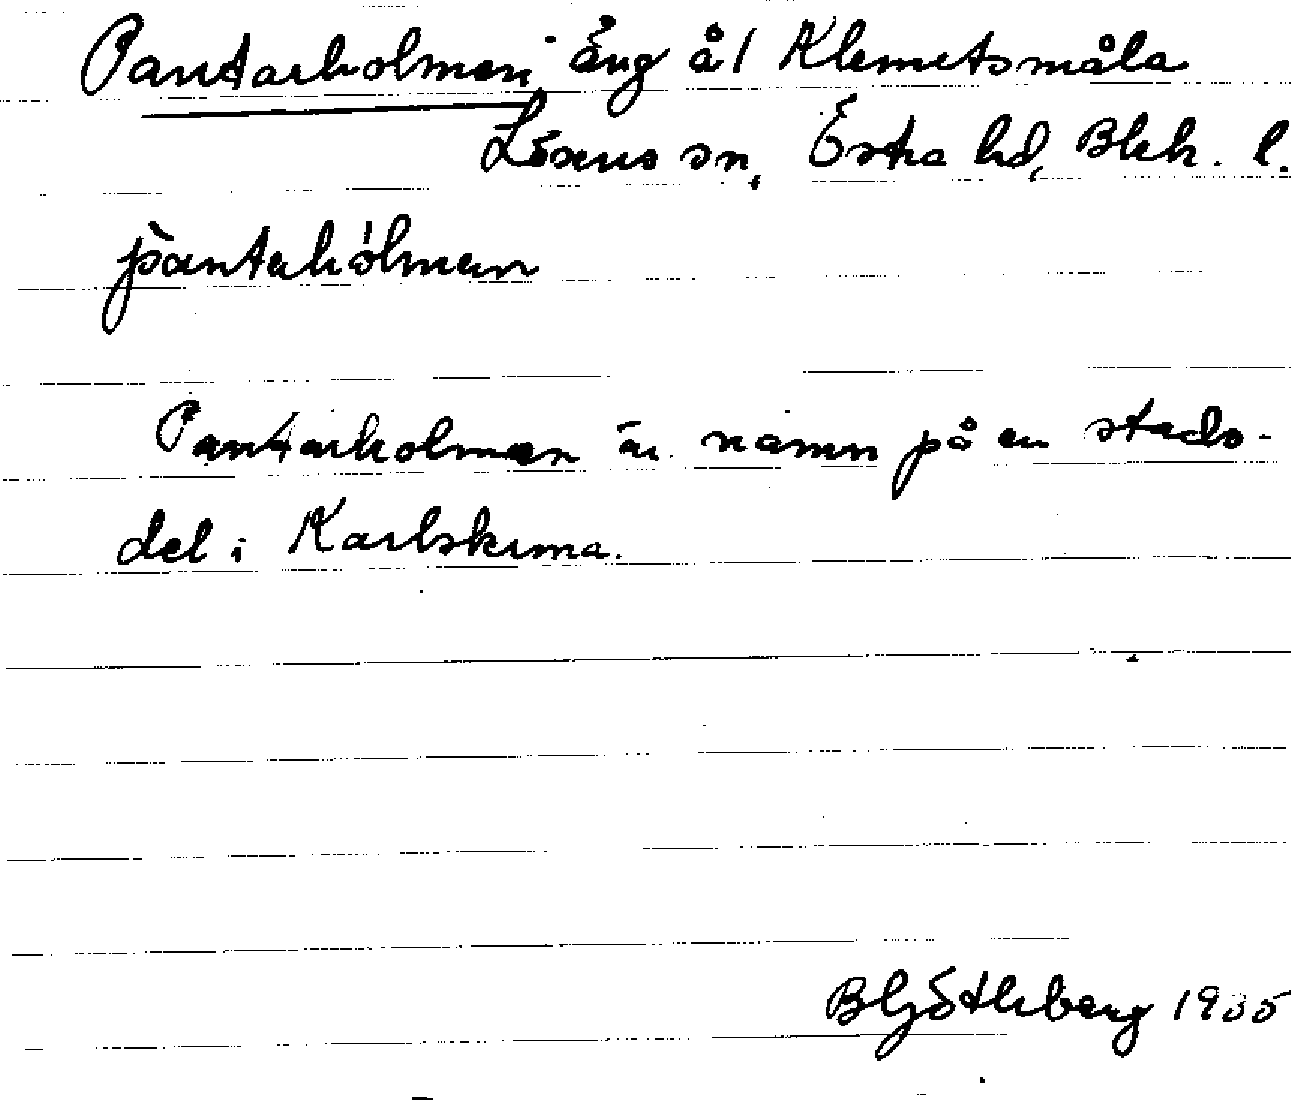 Pantarholmen Äng å 1 Klemetsmåla
Lösens sn, Östra hd, Blek. l.
pàntahólman
Pantarholmen är namn på en stads-
del i Karlskrona.
B Götlhberg 1935